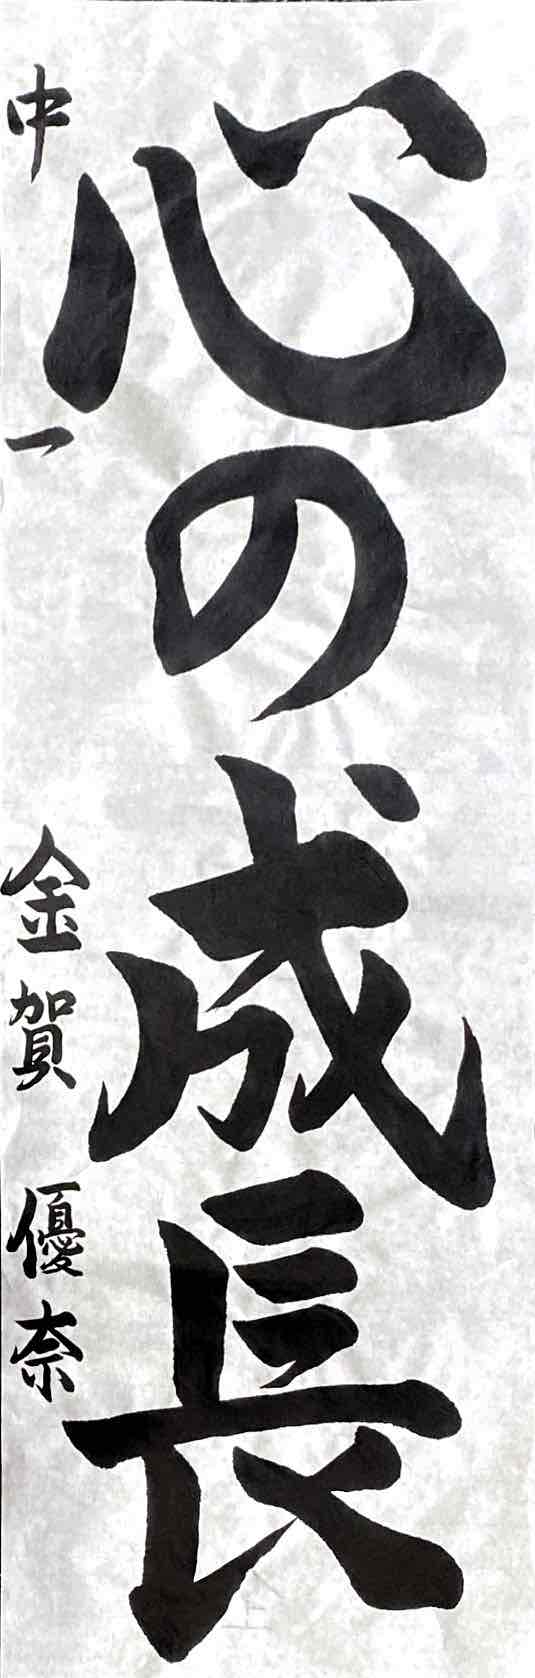 心の成長
中一 金賀 優奈